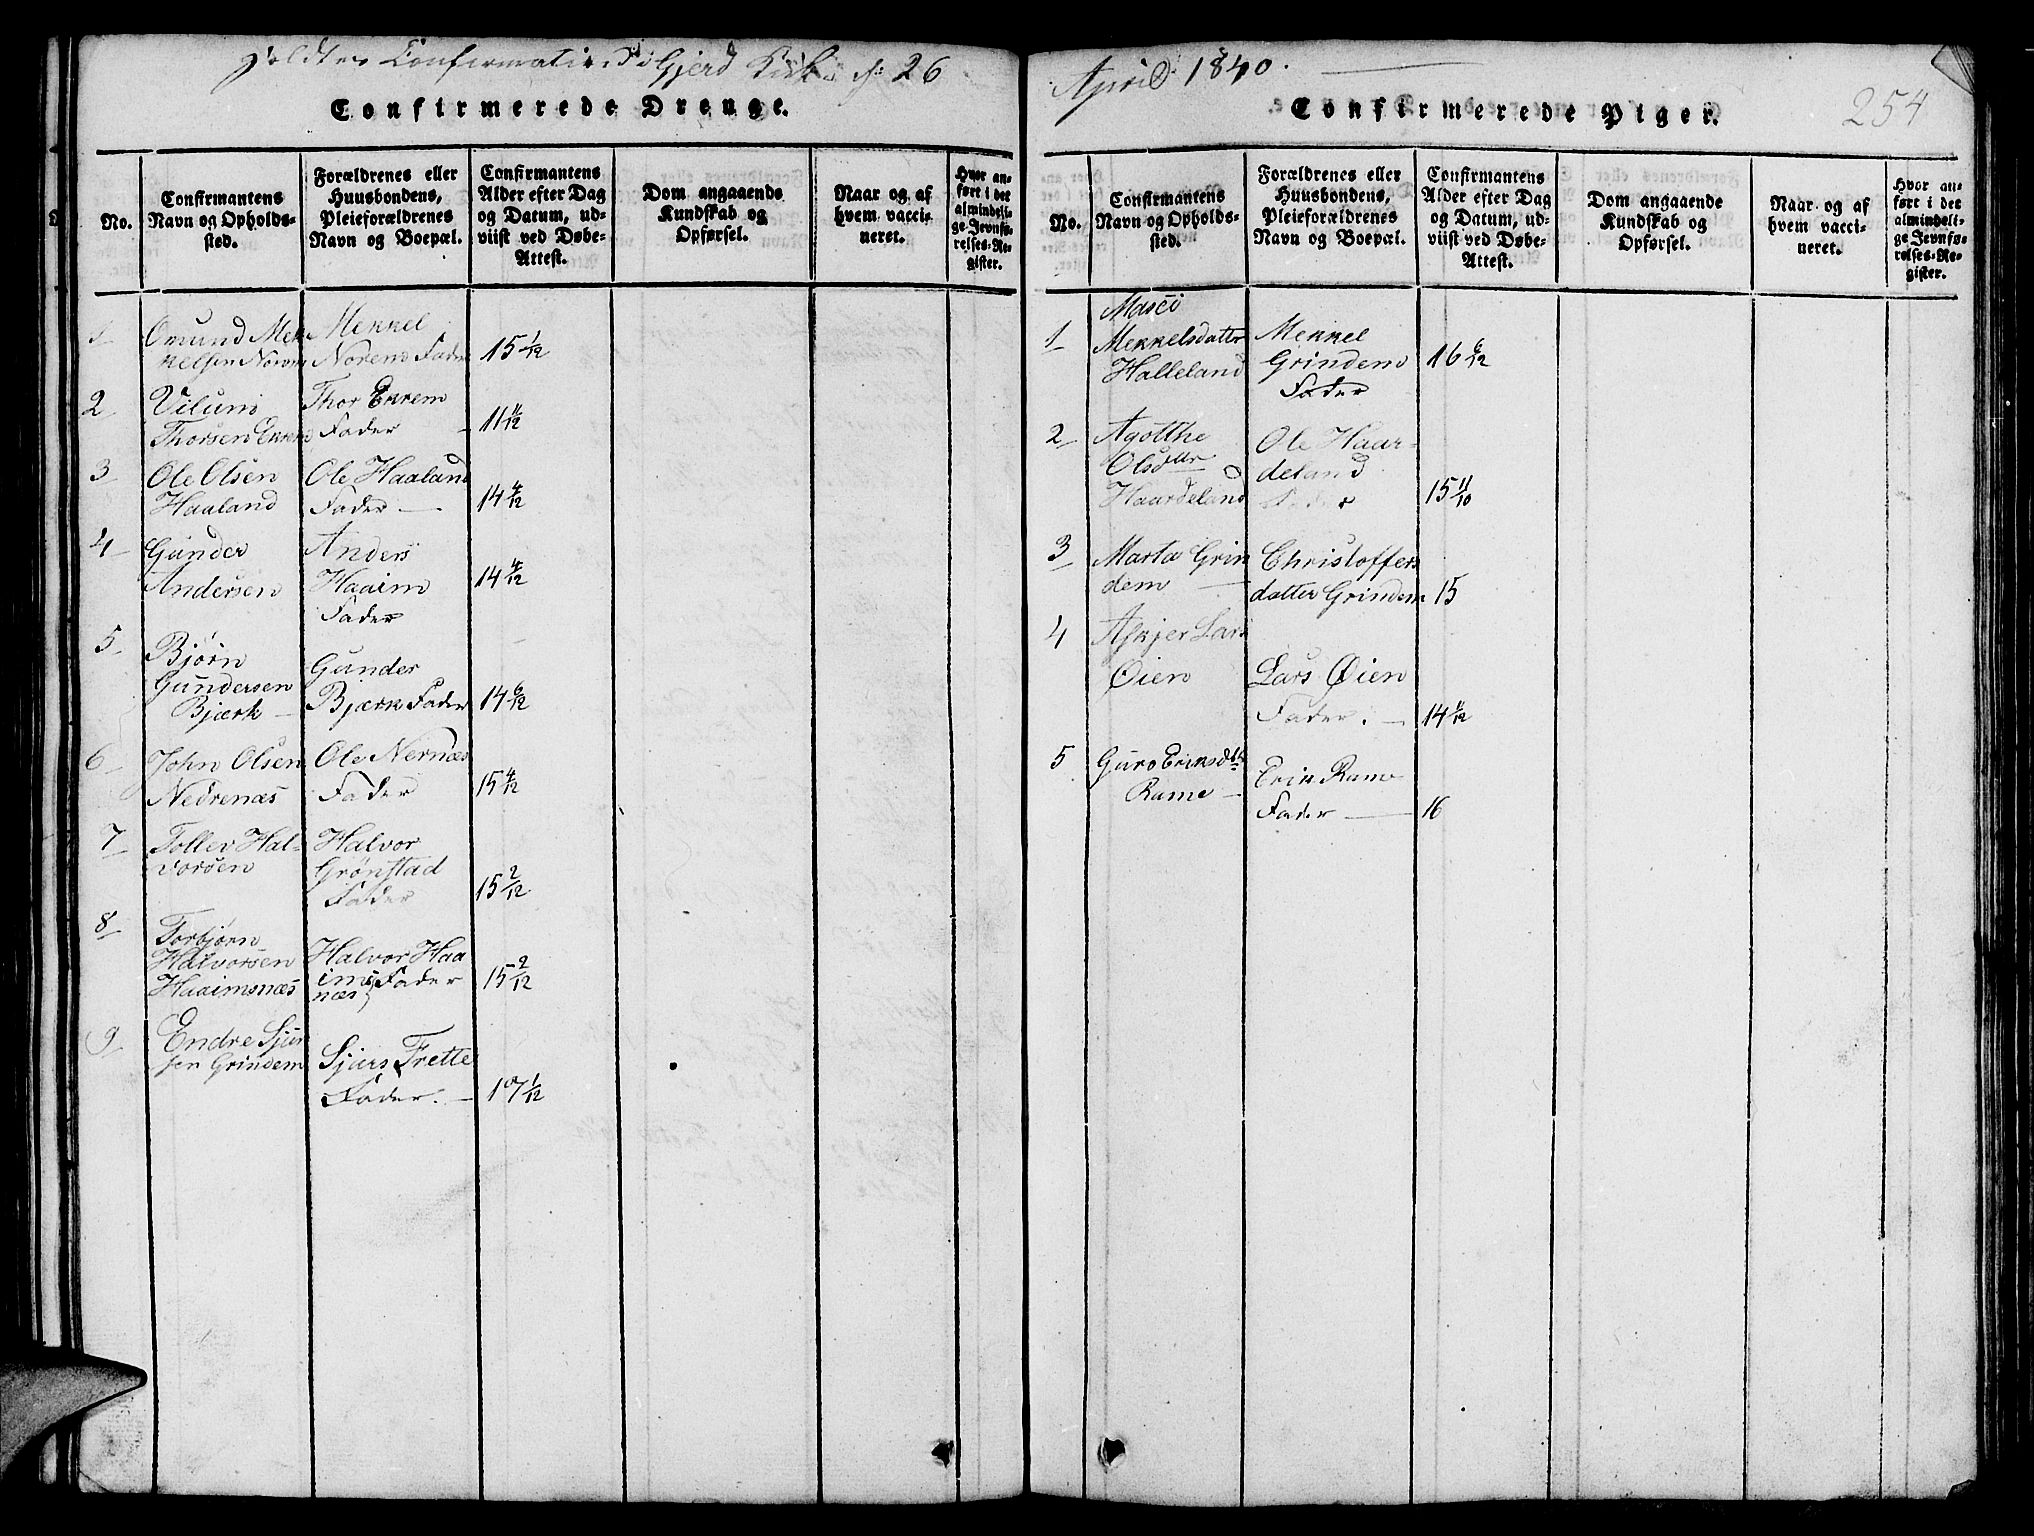 holdtes Confirmation i Gjerd Kirke d: 26
April 1840.
254
Confirmerede Drenge.
No.
Confirmantens
Navn og Opholds-
sted.
Forældrenes eller
Huusbondens,
Pleieforældrenes
Navn og Boepæl.
Confirmantens
Alder efter Dag
og Datum, ud-
viist ved Døbe-
Attest.
Dom angaaende
Kundskab og
Opførsel.
Naar og af
hvem vacci-
neret.
Hvor an-
ført i det
almindeli-
ge Jevnfø-
relses-Re-
gister.
1
Omund Mek
kelsen Norem
Mekkel
Norem Fader
15 1/12
2
Vilum
Thorsen Ekrem
Thor Ekrem
Fader
11 11/12
3
Ole Olsen
Haaland
Ole Haaland
Fader
14 4/12
4
Gunder
Andersen
Anders
Haaim
Fader
14 4/12
5
Bjørn
Gundersen
Bjærk
Gunder
Bjærk Fader
14 6/12
6
John Olsen
Nedrenæs
Ole Nernæs
Fader
15 4/12
7
Tollev Hal-
vorsen
Halvor
Grønstad
Fader
15 2/12
8
Torbjørn
Halvorsen
Haaimsnæs
Halvor Haa
ims Fader
næs
15 2/12
9
Endre Sjur
sen Grindem
Sjurs Frette
Fader.
17 1/12
Confirmerede Piger.
No.
Confirmantens
Navn og Opholds-
sted.
Forældrenes eller
Huusbondens,
Pleieforældrenes
Navn og Boepæl.
Confirmantens
Alder efter Dag
og Datum, ud-
viist ved Døbe-
Attest.
Dom angaaende
Kundskab og
Opførsel.
Naar og af
hvem vacci-
neret.
Hvor an-
ført i det
almindeli-
ge Jevnfø-
relses-Re-
gister.
1
Mekkelsdatter
Halleland
Mekkel
Grindem
Fader
16 6/12
2
Agotthe
Olsdttr
Haardeland
Ole Haar-
deland
Fader
15 11/10
3
Marta Grin
dem
Christoffers
datter Grindem
15
4
Askjer Lars
Øien
Lars Øien
Fader.
14 11/12
5
Guro Eriksdtr
Rame
Erik Rame
Fader
16